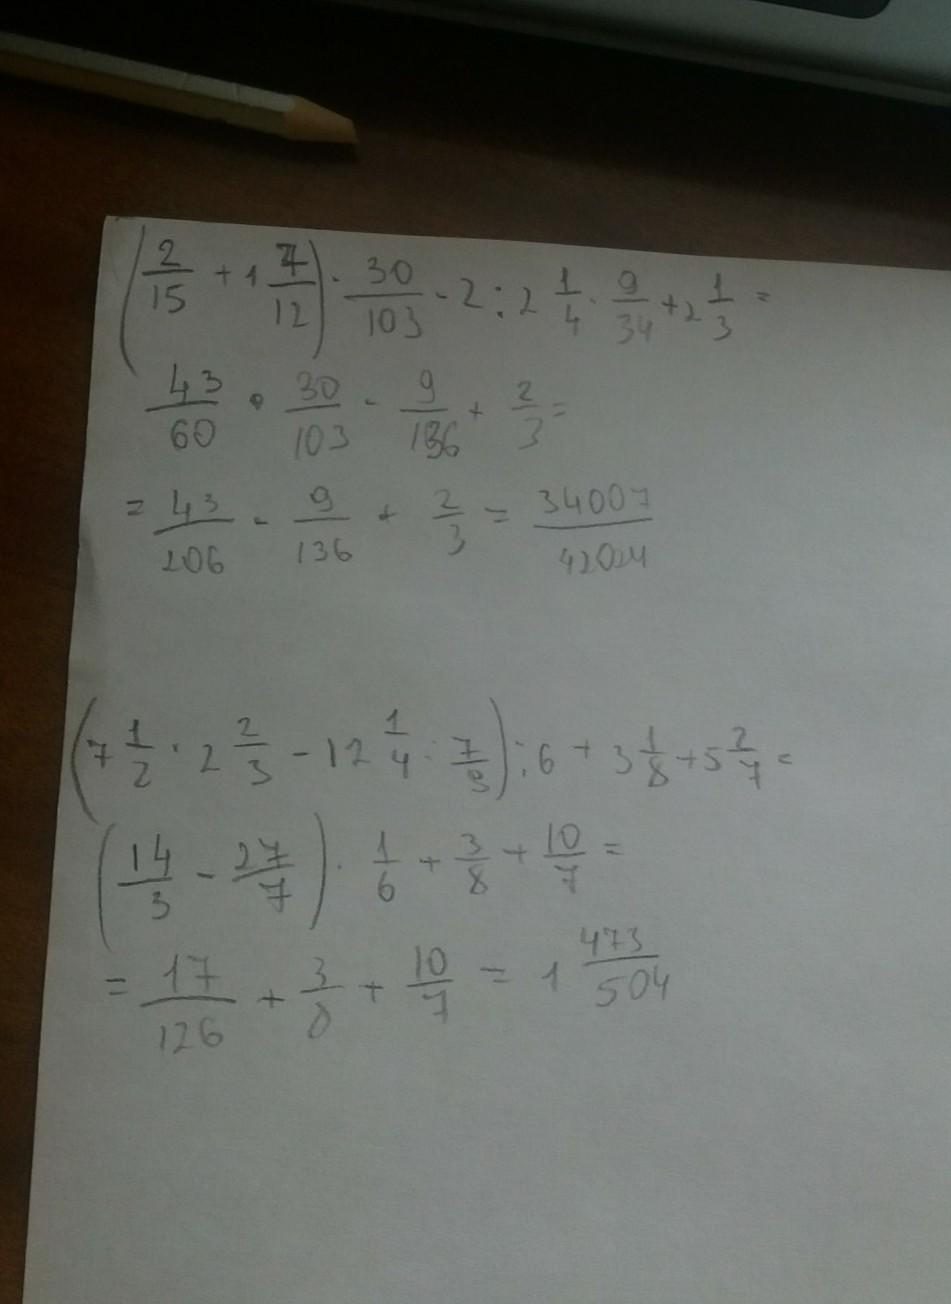 (2/15 + 1 7/12) · 30/103 - 2 : 2 1/4 · 9/34 + 2 1/3 =
43/60 · 30/103 - 9/136 + 2/3 =
= 43/206 - 9/136 + 2/3 = 34007/42024
(7 1/2 · 2 2/3 - 12 1/4 : 7/9) : 6 + 3 1/8 + 5 2/7 =
(14/3 - 27/7) · 1/6 + 3/8 + 10/7 =
= 17/126 + 3/8 + 10/7 = 1 473/504